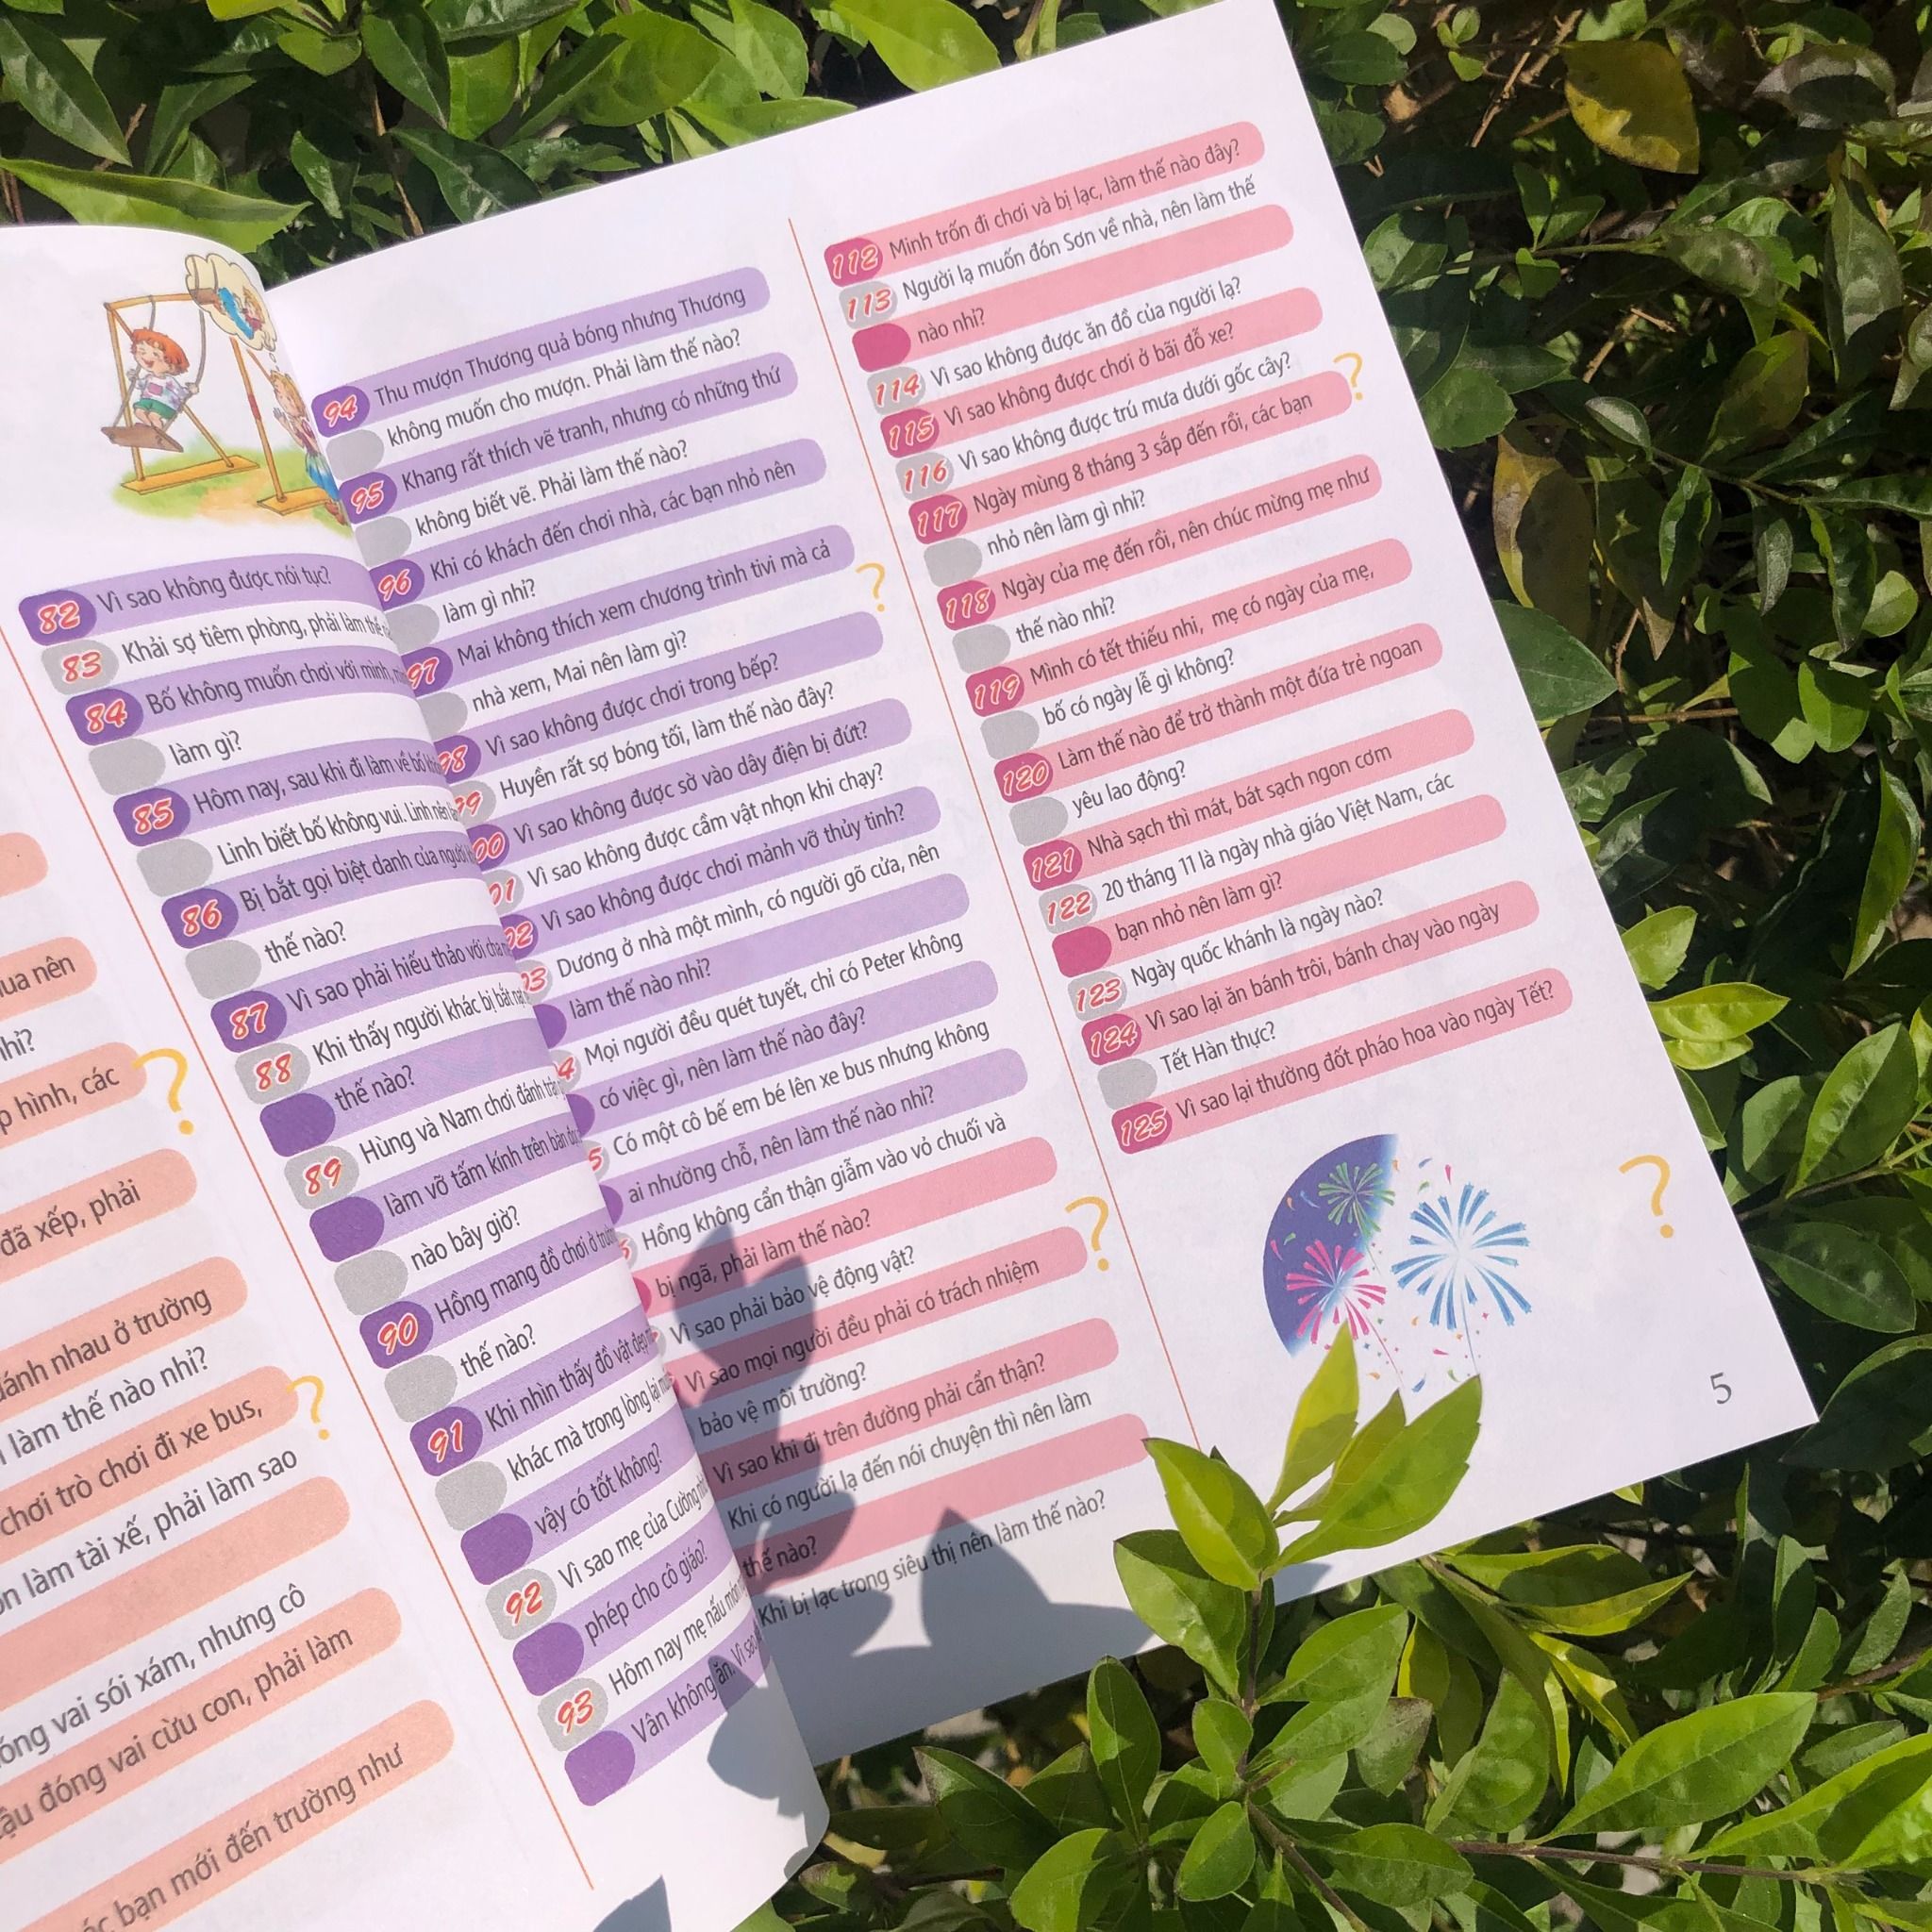 ua nên
hỉ?
hình, các
đã xếp, phải
đánh nhau ở trường
làm thế nào nhỉ?
chơi trò chơi đi xe bus,
làm tài xế, phải làm sao
đóng vai sói xám, nhưng cô
đóng vai cừu con, phải làm
bạn mới đến trường như
82 Vì sao không được nói tục?
83 Khải sợ tiêm phòng, phải làm thế
84 Bố không muốn chơi với mình,
làm gì?
85 Hôm nay, sau khi đi làm về bố
Linh biết bố không vui. Linh nên
86 Bị bắt gọi biệt danh của người
thế nào?
87 Vì sao phải hiếu thảo với cha
88 Khi thấy người khác bị bắt nạt
thế nào?
89 Hùng và Nam chơi đánh trận
làm vỡ tấm kính trên bàn
nào bây giờ?
90 Hồng mang đồ chơi ở trường
thế nào?
91 Khi nhìn thấy đồ vật đẹp
khác mà trong lòng lại
vậy có tốt không?
92 Vì sao mẹ của Cường
phép cho cô giáo?
93 Hôm nay mẹ nấu món
Vân không ăn. Vì sao
94 Thu mượn Thương quả bóng nhưng Thương
không muốn cho mượn. Phải làm thế nào?
95 Khang rất thích vẽ tranh, nhưng có những thứ
không biết vẽ. Phải làm thế nào?
96 Khi có khách đến chơi nhà, các bạn nhỏ nên
làm gì nhỉ?
97 Mai không thích xem chương trình tivi mà cả
nhà xem, Mai nên làm gì?
98 Vì sao không được chơi trong bếp?
99 Huyền rất sợ bóng tối, làm thế nào đây?
00 Vì sao không được sờ vào dây điện bị đứt?
01 Vì sao không được cầm vật nhọn khi chạy?
02 Vì sao không được chơi mảnh vỡ thủy tinh?
03 Dương ở nhà một mình, có người gõ cửa, nên
làm thế nào nhỉ?
4 Mọi người đều quét tuyết, chỉ có Peter không
có việc gì, nên làm thế nào đây?
5 Có một cô bế em bé lên xe bus nhưng không
ai nhường chỗ, nên làm thế nào nhỉ?
Hồng không cẩn thận giẫm vào vỏ chuối và
bị ngã, phải làm thế nào?
Vì sao phải bảo vệ động vật?
Vì sao mọi người đều phải có trách nhiệm
bảo vệ môi trường?
Vì sao khi đi trên đường phải cẩn thận?
Khi có người lạ đến nói chuyện thì nên làm
thế nào?
Khi bị lạc trong siêu thị nên làm thế nào?
112 Minh trốn đi chơi và bị lạc, làm thế nào đây?
113 Người lạ muốn đón Sơn về nhà, nên làm thế
nào nhỉ?
114 Vì sao không được ăn đồ của người lạ?
115 Vì sao không được chơi ở bãi đỗ xe?
116 Vì sao không được trú mưa dưới gốc cây?
117 Ngày mùng 8 tháng 3 sắp đến rồi, các bạn
nhỏ nên làm gì nhỉ?
118 Ngày của mẹ đến rồi, nên chúc mừng mẹ như
thế nào nhỉ?
119 Mình có tết thiếu nhi, mẹ có ngày của mẹ,
bố có ngày lễ gì không?
120 Làm thế nào để trở thành một đứa trẻ ngoan
yêu lao động?
121 Nhà sạch thì mát, bát sạch ngon cơm
122 20 tháng 11 là ngày nhà giáo Việt Nam, các
bạn nhỏ nên làm gì?
123 Ngày quốc khánh là ngày nào?
124 Vì sao lại ăn bánh trôi, bánh chay vào ngày
Tết Hàn thực?
125 Vì sao lại thường đốt pháo hoa vào ngày Tết?
5